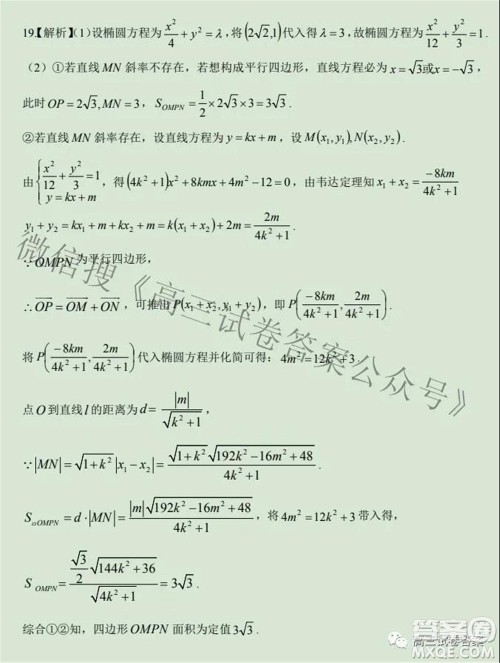 19【解析】(1)设椭圆方程为 x²/4 + y² = λ,将(2√2,1)代入得λ=3,故椭圆方程为 x²/12 + y²/3 = 1.
(2)①若直线MN斜率不存在,若想构成平行四边形,直线方程必为x=√3或x=-√3,
此时OP=2√3,MN=3,S_OMPN = 1/2×2√3×3=3√3.
②若直线MN斜率存在,设直线方程为y=kx+m,设M(x₁,y₁),N(x₂,y₂).
由{x²/12 + y²/3 = 1, y=kx+m,得(4k²+1)x²+8kmx+4m²-12=0,由韦达定理知x₁+x₂=-8km/(4k²+1)
y₁+y₂=kx₁+m+kx₂+m=k(x₁+x₂)+2m=2m/(4k²+1)
∵OMPN为平行四边形,
∴OP=OM+ON,可推出P(x₁+x₂,y₁+y₂),即P(-8km/(4k²+1),2m/(4k²+1)).
将P(-8km/(4k²+1),2m/(4k²+1))代入椭圆方程并化简可得:4m²=12k²+3
点O到直线l的距离为d=|m|/√(k²+1),
∵|MN|=√(1+k²)|x₁-x₂|=√(1+k²)√(192k²-16m²+48)/(4k²+1)
S_□OMPN=d·|MN|=|m|√(192k²-16m²+48)/(4k²+1),将4m²=12k²+3带入得,
S_OMPN=(√3/2)√(144k²+36)/√(4k²+1)=3√3.
综合①②知,四边形OMPN面积为定值3√3.
微信搜《高三试卷答案公众号》
高三试卷答案
答案圈
MXQE.COM